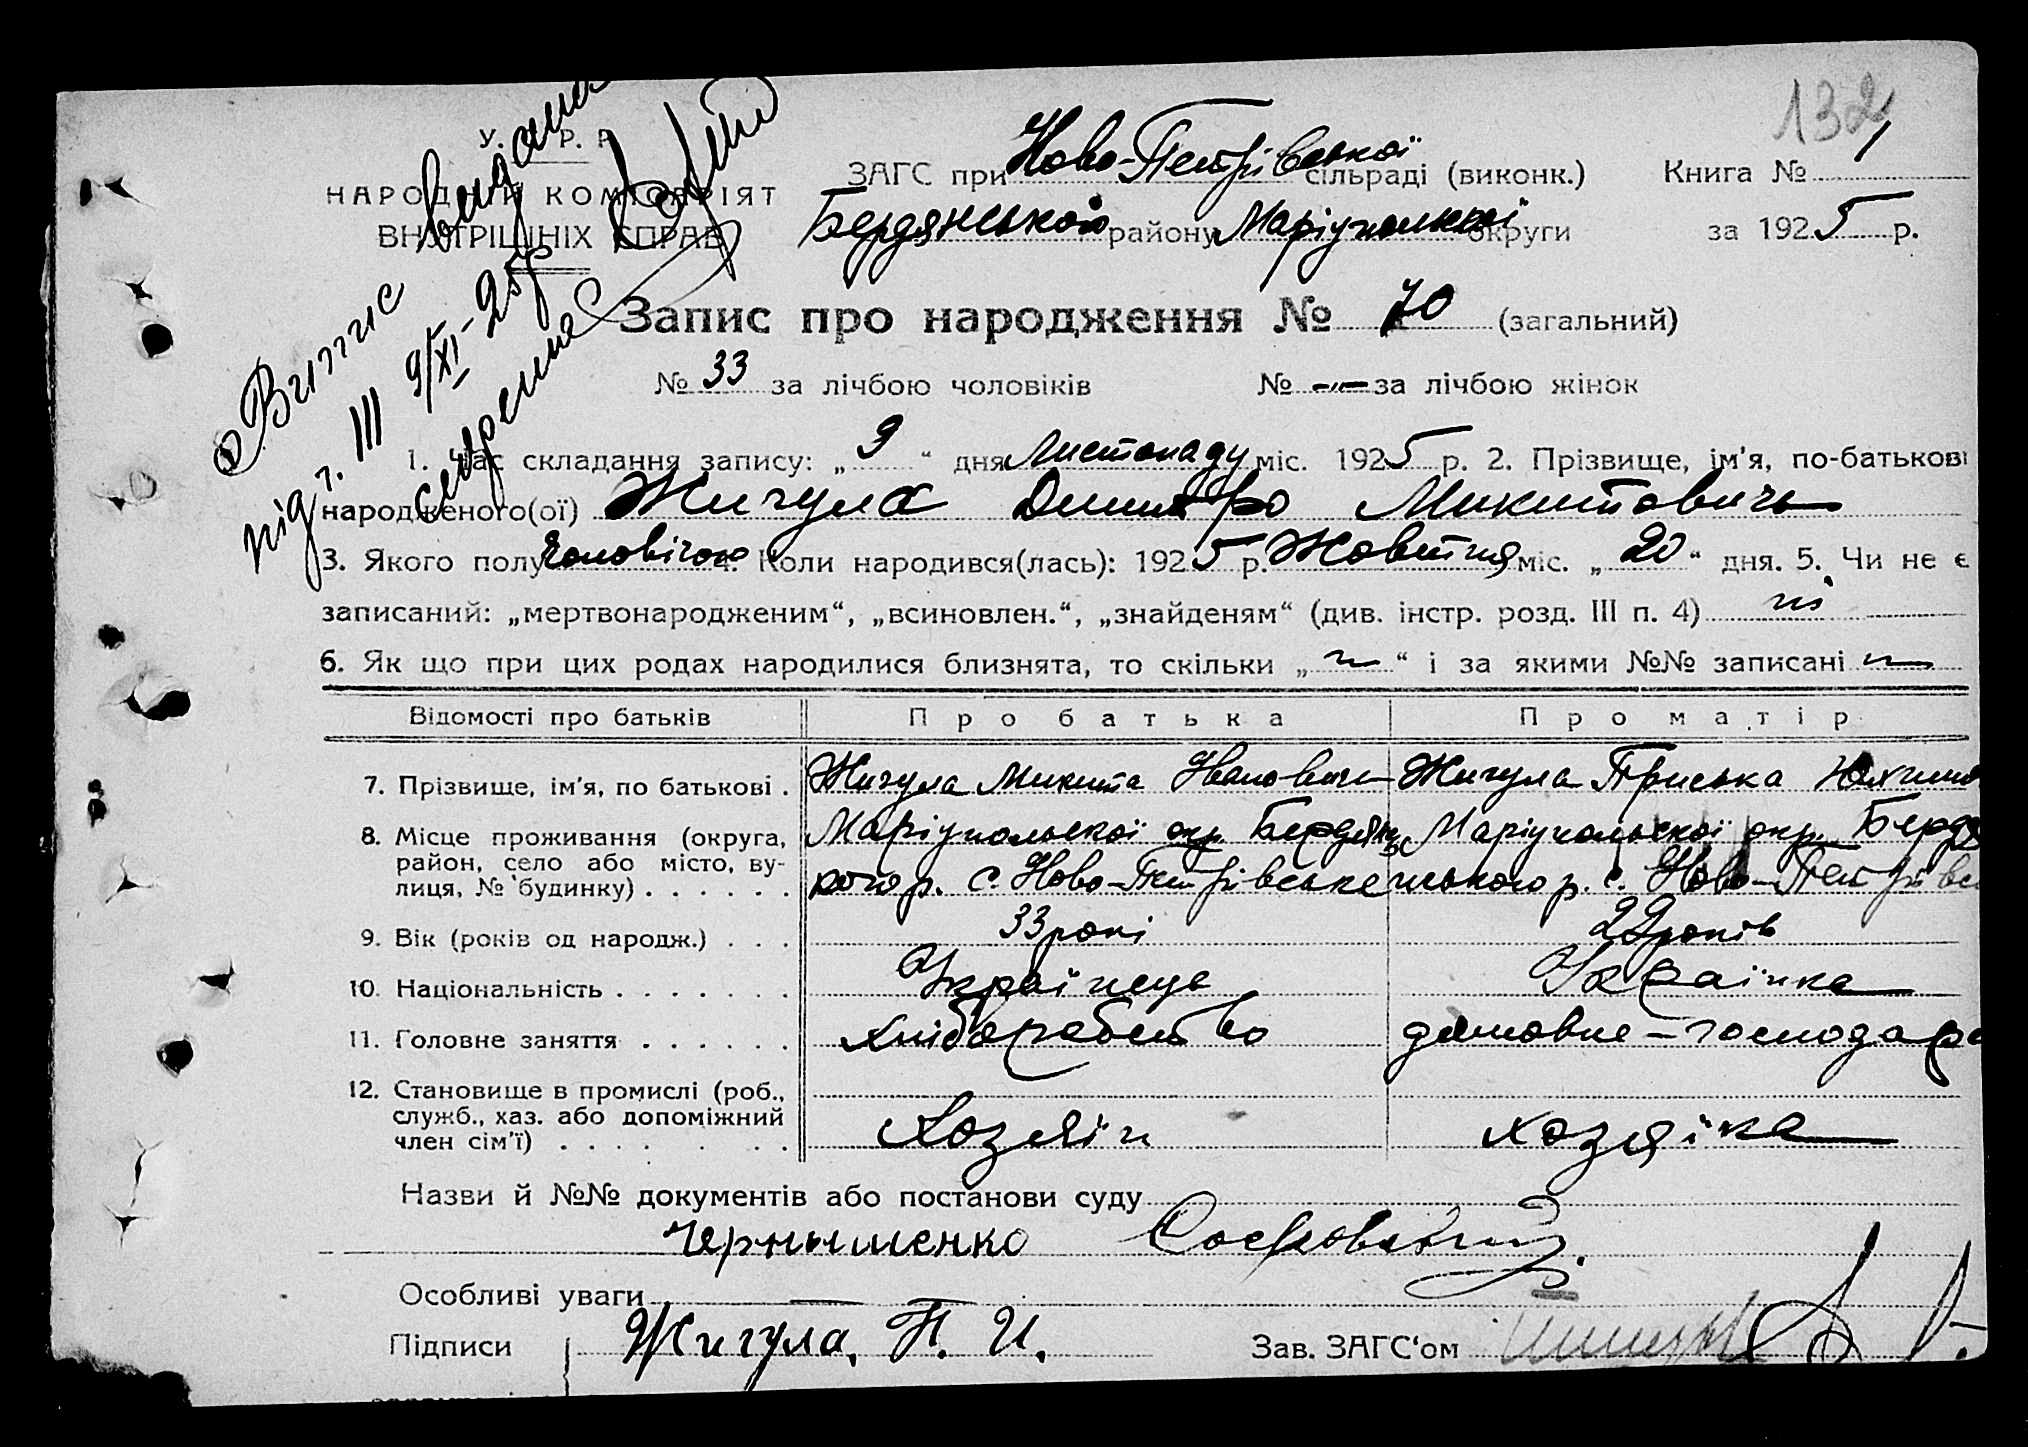 132
У. Р. Р.
ЗАГС при Ново-Петрівської сільраді (виконк.) Книга № 1
НАРОДНІЙ КОМІСАРІЯТ
ВНУТРІШНІХ СПРАВ
Бердянського району Маріупольської округи за 1925 р.
Випис видана
під г. III 9/XI-25р
Запис про народження № 70 (загальний)
№ 33 за лічбою чоловіків № — за лічбою жінок
1. Час складання запису: „ 9 “ дня Листопаду міс. 1925 р. 2. Прізвище, ім'я, по-батькові
народженого(ої) Жигула Дмитро Микитович
3. Якого полу Чоловічого 4. Коли народився(лась): 1925 р. Жовтня міс. „ 20 “ дня. 5. Чи не є
записаний: „мертвонародженим“, „всиновлен.“, „знайденям“ (див. інстр. розд. III п. 4) ні
6. Як що при цих родах народилися близнята, то скільки „ — “ і за якими №№ записані —
Відомості про батьків Про батька Про матір
7. Прізвище, ім'я, по батькові . Жигула Микита Иванович Жигула Приська
8. Місце проживання (округа, Маріупольскої окр. Бердянс Маріупольскої окр. Бердя
район, село або місто, ву-
лиця, № будинку) . . . . . . кого р. с. Ново-Петрівське нського р. с. Ново-Петрівсь
9. Вік (років од народж.) . . . 33 рокі 29 років
10. Національність . . . . . . . Українець Українка
11. Головне заняття . . . . . . хліборобство домовне-господар
12. Становище в промислі (роб.,
служб., хаз. або допоміжний
член сім'ї) . . . . . . Хозяїн хозяїка
Назви й №№ документів або постанови суду
Чернышенко
Особливі уваги — —
Підписи Жигула. Н. И. Зав. ЗАГС'ом